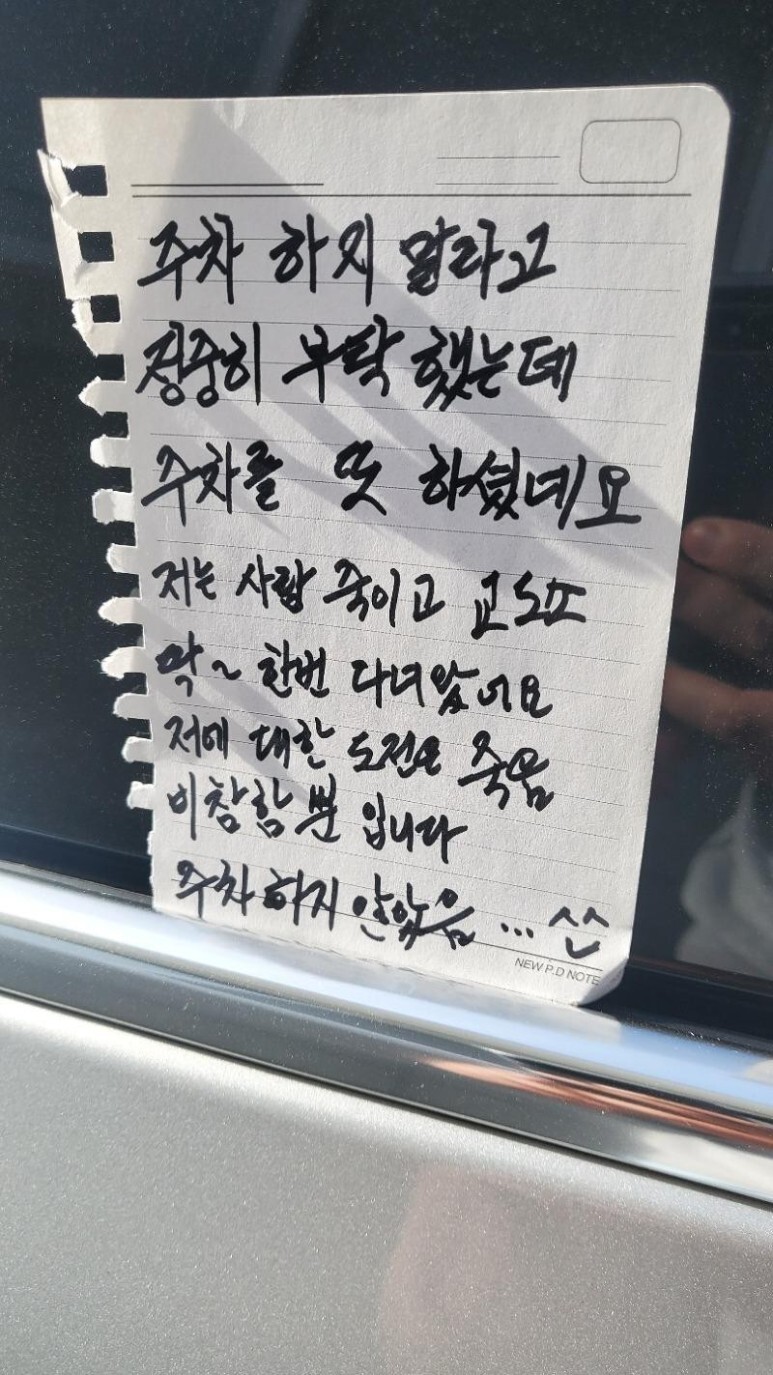 주차 하지 말라고
정중히 부탁 했는데
주차를 또 하셨네요
저는 사람 죽이고 교도소
딱~ 한번 다녀왔어요
저에 대한 도전은 죽음
비참함 뿐 입니다
주차 하지 않았음 ... ^^
NEW P.D NOTE